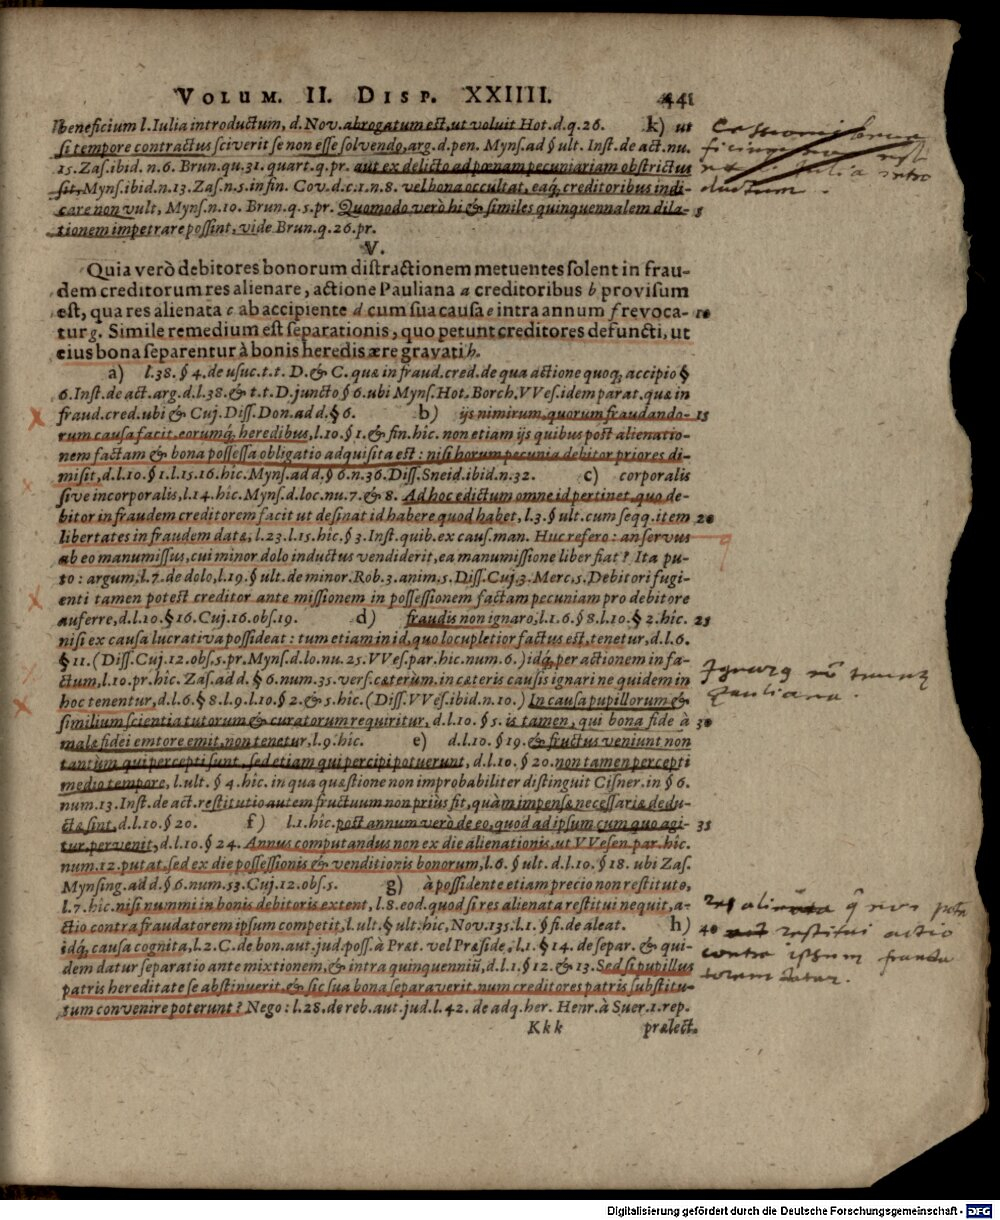 VOLUM. II. DISP. XXIIII. 441
beneficium l. Iulia introductum, d. Nov. abrogatum est, ut voluit Hot. d. q. 26. k) ut
si tempore contractus sciverit se non esse solvendo, arg. d. pen. Myns. ad § ult. Inst. de act. nu.
15. Zas. ibid. n. 6. Brun. qu. 31. quart. q. pr. aut ex delicto ad pœnam pecuniariam obstrictus
sit, Myns. ibid. n. 13. Zas. n. 5. in fin. Cov. d. c. 1. n. 8. vel bona occultat, eaq́; creditoribus indi-
care non vult, Myns. n. 10. Brun. q. 5. pr. Quomodo verò hi & similes quinquennalem dila- 5
tionem impetrare possint, vide Brun. q. 26. pr.
V.
Quia verò debitores bonorum distractionem metuentes solent in frau-
dem creditorum res alienare, actione Pauliana a creditoribus b provisum
est, qua res alienata c ab accipiente d cum sua causa e intra annum f revoca- 10
tur g. Simile remedium est separationis, quo petunt creditores defuncti, ut
eius bona separentur à bonis heredis ære gravati h.
a) l. 38. § 4. de usuc. t. t. D. & C. quæ in fraud. cred. de qua actione quoq; accipio §
6. Inst. de act. arg. d. l. 38. & t. t. D. juncto § 6. ubi Myns. Hot. Borch. VVes. idem parat. quæ in
fraud. cred. ubi & Cuj. Diss. Don. ad d. § 6. b) ijs nimirum, quorum fraudando- 15
rum causa facit, eorumq́; heredibus, l. 10. § 1. & fin. hîc. non etiam ijs quibus post alienatio-
nem factam & bona possessa obligatio adquisita est: nisi horum pecunia debitor priores di-
misit, d. l. 10. § 1. l. 15. 16. hîc. Myns. ad d. § 6. n. 36. Diss. Sneid. ibid. n. 32. c) corporalis
sive incorporalis, l. 14. hîc. Myns. d. loc. nu. 7. & 8. Ad hoc edictum omne id pertinet, quo de-
bitor in fraudem creditorem facit ut desinat id habere quod habet, l. 3. § ult. cum seqq. item 20
libertates in fraudem datæ, l. 23. l. 15. hîc. § 3. Inst. quib. ex caus. man. Huc refero: an servus
ab eo manumissus, cui minor dolo inductus vendiderit, ea manumissione liber fiat? Ita pu-
to: argum. l. 7. de dolo, l. 19. § ult. de minor. Rob. 3. anim. 5. Diss. Cuj. 3. Merc. 5. Debitori fugi-
enti tamen potest creditor ante missionem in possessionem factam pecuniam pro debitore
auferre, d. l. 10. § 16. Cuj. 16. obs. 19. d) fraudis non ignaro, l. 1. 6. § 8. l. 10. § 2. hîc. 25
nisi ex causa lucrativa possideat: tum etiam in id, quo locupletior factus est, tenetur, d. l. 6.
§ 11. (Diss. Cuj. 12. obs. 5. pr. Myns. d. lo. nu. 25. VVes. par. hîc. num. 6.) idq́; per actionem in fa-
ctum, l. 10. pr. hîc. Zas. ad d. § 6. num. 35. vers. cæterùm. in cæteris causis ignari ne quidem in
hoc tenentur, d. l. 6. § 8. l. 9. l. 10. § 2. & 5. hîc. (Diss. VVes. ibid. n. 10.) In causa pupillorum &
similium scientia tutorum & curatorum requiritur, d. l. 10. § 5. is tamen, qui bona fide à 30
malæ fidei emtore emit, non tenetur, l. 9. hîc. e) d. l. 10. § 19. & fructus veniunt non
tantùm qui percepti sunt, sed etiam qui percipi potuerunt, d. l. 10. § 20. non tamen percepti
medio tempore, l. ult. § 4. hîc. in qua quæstione non improbabiliter distinguit Cisner. in § 6.
num. 13. Inst. de act. restitutio autem fructuum non priùs fit, quàm impensæ necessariæ dedu-
ctæ sint, d. l. 10. § 20. f) l. 1. hîc. post annum verò de eo, quod ad ipsum cum quo agi- 35
tur, pervenit, d. l. 10. § 24. Annus computandus non ex die alienationis, ut VVesen. par. hîc.
num. 12. putat, sed ex die possessionis & venditionis bonorum, l. 6. § ult. d. l. 10. § 18. ubi Zas.
Mynsing. ad d. § 6. num. 53. Cuj. 12. obs. 5. g) à possidente etiam precio non restituto,
l. 7. hîc. nisi nummi in bonis debitoris extent, l. 8. eod. quod si res alienata restitui nequit, a-
ctio contra fraudatorem ipsum competit, l. ult. § ult. hîc, Nov. 135. l. 1. § fi. de aleat. h) 40
idq́; causa cognita, l. 2. C. de bon. aut. jud. poss. à Præt. vel Præside, l. 1. § 14. de separ. & qui-
dem datur separatio ante mixtionem, & intra quinquenniũ, d. l. 1. § 12. & 13. Sed si pupillus
patris hereditate se abstinuerit, & sic sua bona separaverit, num creditores patris substitu-
tum convenire poterunt? Nego: l. 28. de reb. aut. jud. l. 42. de adq. her. Henr. à Suer. 1. rep.
Kkk prælect.
Ignarg nō tenentr
Pauliana.
Res alienata q̄ non pote
restitui actio
contra ipsum frauda
torem datur.
Digitalisierung gefördert durch die Deutsche Forschungsgemeinschaft - DFG